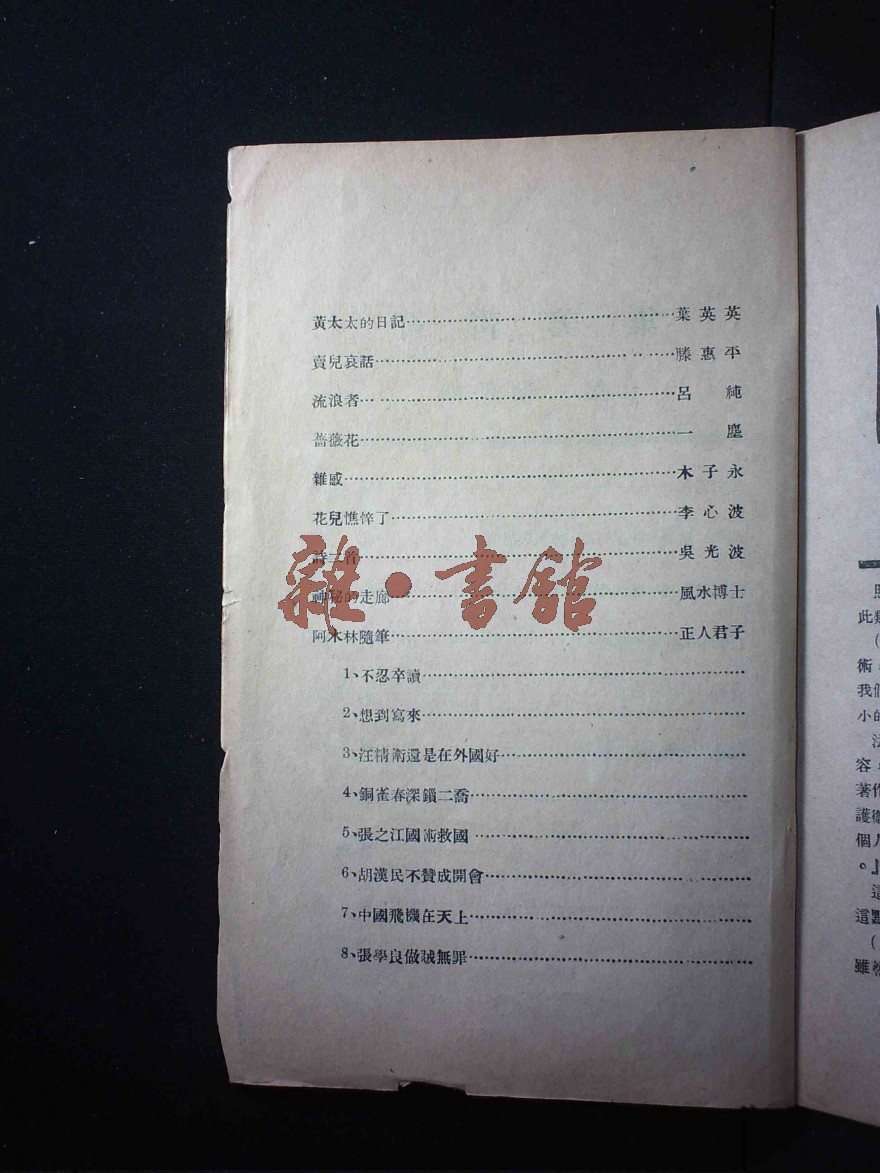 黃太太的日記⋯⋯葉英英
賣兒哀話⋯⋯滕惠平
流浪者⋯⋯呂純
薔薇花⋯⋯一塵
雜感⋯⋯木子永
花兒憔悴了⋯⋯李心波
詩三首⋯⋯吳光波
神秘的走廊⋯⋯風水博士
阿木林隨筆⋯⋯正人君子
1、不忍卒讀⋯⋯
2、想到寫來⋯⋯
3、汪精衛還是在外國好⋯⋯
4、銅雀春深鎖二喬⋯⋯
5、張之江國術救國⋯⋯
6、胡漢民不贊成開會⋯⋯
7、中國飛機在天上⋯⋯
8、張學良做賊無罪⋯⋯
雜·書館
此類
術
我們
小的
容
著作
護衛
個人
。』
這
這點
雖